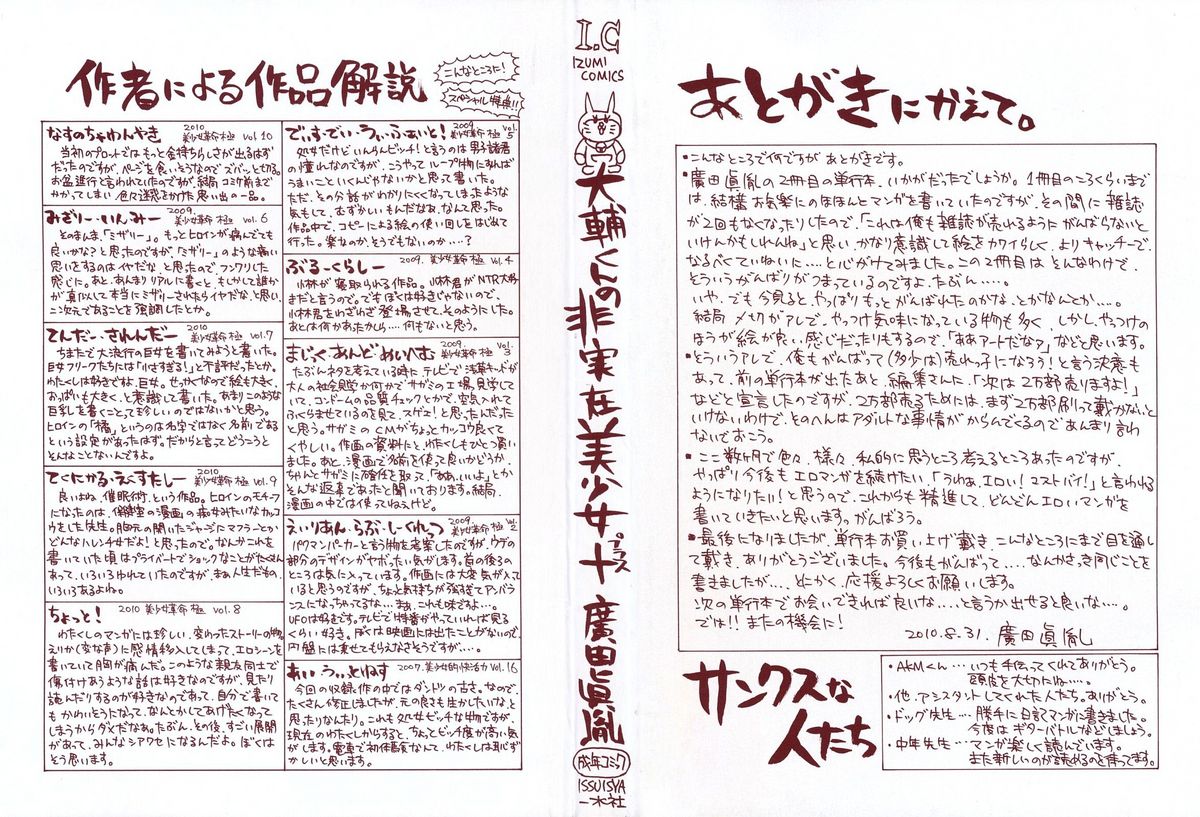 作者による作品解説
こんなところに!
スペシャル特偵!!
なすのちゃわんやき
2010
美少女革命 極 vol.10
当初のプロットではもっと金持ちらしさが出るはず
だったのですが、ページを食いそうなのでズバッと切る。
お盆進行と言われていたのですが、結局コミケ前まで
かかってしまい色々迷惑をかけた思い出の一品。
みざりー・いんみー
2009.
美少女革命 極 vol.6
そのまんま、「ミザリー」。もっとヒロインが病んでても
良いかな?と思ったのですが、「ミザリー」のような痛い
思いをするのはイヤだな、と思ったので、フンワリした
感じに。あと、あんまりリアルに書くと、もしかして誰か
が真似して本当にミザリーされたらイヤだな、と思い、
二次元であることを強調したとか。
てんだー・されんだー
2010
美少女革命 極 vol.7
ちまたで大流行の巨女を書いてみようと書いた。
巨女フリークたちには「小さすぎる!」と不評だったとか。
わたくしは好きですね、巨女。せっかくなので絵も大きく、
おっぱいも大きく、と意識して書いた。あまりこのような
巨乳を書くことって珍しいのではないかと思う。
ヒロインの「橘」というのは名字ではなく名前である
という設定があったはず。だからと言ってどうこうと
そんなことないんですよ。
てくにかる・えくすたしー
2010
美少女革命 極 vol.9
良いよね、催眠術、という作品。ヒロインのモチーフ
になったのは、保健室の漫画の痴女みたいなカッコ
ウをした先生。胸元の開いたジャージにマフラーとか
どんなハレンチ女だよ!と思ったので。なんかこれを
書いていた頃はプライベートでショックなことがたくさん
あって、いろいろゆれていたのですが、まぁ人生だもの、
いろいろあるよね。
ちょっと!
2010 美少女革命 極 vol.8
わたくしのマンガには珍しい、変わったストーリーの物。
えりか(変な声)に感情移入してしまって、エロシーンを
書いていて胸が痛んだ。このような親友同士で
傷付けあうような話は好きなのですが、見たり
読んだりするのが好きなのであって、自分で書いて
もかわいそうになって、なんとかしてあげたくなって
しまうからダメだなぁ。たぶん、その後、すごい展開
があって、みんなシアワセになるんだよ。ぼくは
そう思います。
でぃすでい・うぃ・ふぁいと!
2009
美少女革命 極 vol.5
処女だけどいんらんビッチ!と言うのは男子諸君
の憧れなのですが、こうやってループ物にすれば
うまいこといくんじゃないかと思って書いた。
ただ、その分話がわかりにくくなってしまったような
気もして、むずかしいもんだなぁ、なんて思った。
作品中で、コピーによる絵の使い回しをはじめて
行った。楽なのか、そうでもないのか・・・・?
ぶるーくらしー
2009. 美少女革命 極 vol.4
小林が寝取られる作品。小林君がNTR大好
きだと言うので。でもぼくは好きじゃないので、
小林君をわざわざ登場させて、そのようにした。
あとは何かあったかしら・・・・何もないと思う。
まじっく・あんど・めいへむ
2009.
美少女革命 極 vol.3
たぶんネタを考えている時に、テレビで浅草キッドが
大人の社会見学か何かでサガミの工場見学して
いて、コンドームの品質チェックとかで、空気入れて
ふくらませているのを見て、スゲェ!と思ったんだった
と思う。サガミのCMがちょっとカッコウ良くて
くやしい。作画の資料にと、わたくしもひとつ買い
ました。あと、漫画で名前を使って良いかどうか、
ちゃんとサガミに確認を取って、「ああ、いいよ」とか
そんな返事であったと聞いております。結局、
漫画の中では使ってねぇけど。
えいりあん・らぶ・しーくれっつ
2009.
美少女革命 極 vol.2
パクマンパーカーと言う物を考案したのですが、ウデの
部分のデザインがヤボったい気がします。首の後ろの
ところは気に入っています。作画には大変気が入って
いると思うのですが、ちょっと気持ちが強すぎてアンバラ
ンスになっちゃってるな・・・まぁ、これも味ですよ・・・。
UFOは好きです。テレビで特番がやっていれば見る
くらい好き。ぼくは映画には出たことがないので、
円盤には乗せてもらえなさそうですが・・・・。
あい・うぃっとねす
2007. 美少女的快活力 vol.16
今回の収録作の中ではダントツの古さ。なので、
たくさん修正しましたが、元の良さも生かしたいなと
思ったりなんたり。これも処女ビッチな物ですが、
現在のわたくしからすると、ちょっとビッチ度が高い気
がします。電車で初体験なんて、わたくしは恥ず
かしいと思います。
I.C
IZUMI
COMICS
大輔くんの非実在美少女十
プラス
廣田眞胤
成年コミック
ISSUISYA
一水社
あとがきにかえて。
・こんなところで何ですが あとがきです。
・廣田眞胤の2冊目の単行本、いかがだったでしょうか。1冊目のころくらいまで
は、結構お気楽にのほほんとマンガを書いていたのですが、その間に雑誌
が2回もなくなったりしたので、「これは俺も雑誌が売れるようにがんばらないと
いけんかもしれんね」と思い、かなり意識して絵をカワイらしく、よりキャッチーで、
なるべくていねいに・・・・と心がけてみました。この2冊目はそんなわけで、
そういうがんばりがつまっているのですよ、たぶん・・・・。
いや、でも今見ると、やっぱりもっとがんばれたのかな、とかなんとか・・・・。
結局 〆切がアレで、やっつけ気味になっている物も多く、しかし、やっつけの
ほうが絵が良い感じだったりもするので、「ああアートだなァ」などと思います。
・とういうアレで、俺もがんばって(多少は)売れっ子になろう!と言う決意も
あって、前の単行本が出たあと、編集さんに、「次は2万部売りますよ!」
などと宣言したのですが、2万部売るためには、まず2万部刷って戴かないと
いけないわけで、そのへんはアダルトな事情がからんでくるのであんまり言わ
ないでおこう。
・ここ数ヶ月で色々、様々、私的に思うところ考えるところあったのですが、
やっぱり今後もエロマンガを続けたい、「うわぁ、エロい!マストバイ!」と言われる
ようになりたい!と思うので、これからも精進して、どんどんエロいマンガを
書いていきたいと思いますっ。がんばろう。
・最後になりましたが、単行本お買い上げ戴き、こんなところにまで目を通し
て戴き、ありがとうございました。今後もがんばって・・・・・なんかさっき同じことを
書きましたが・・・・とにかく、応援よろしくお願いします。
次の単行本でお会いできれば良いな・・・・と言うか出せると良いな・・・・。
では!!またの機会に!
2010.8.31. 廣田眞胤
サンクスな
人たち
・AKMくん・・・いつも手伝ってくれてありがとう。
頭皮を大切にね・・・・。
・他、アシスタントしてくれた人たち、ありがとう。
・ドッグ先生・・・勝手に日記マンガに書きました。
今度はギターバトルなどしましょう。
・中年先生・・・マンガ楽しく読んでいます。
また新しいのが読めるのを待ってます。